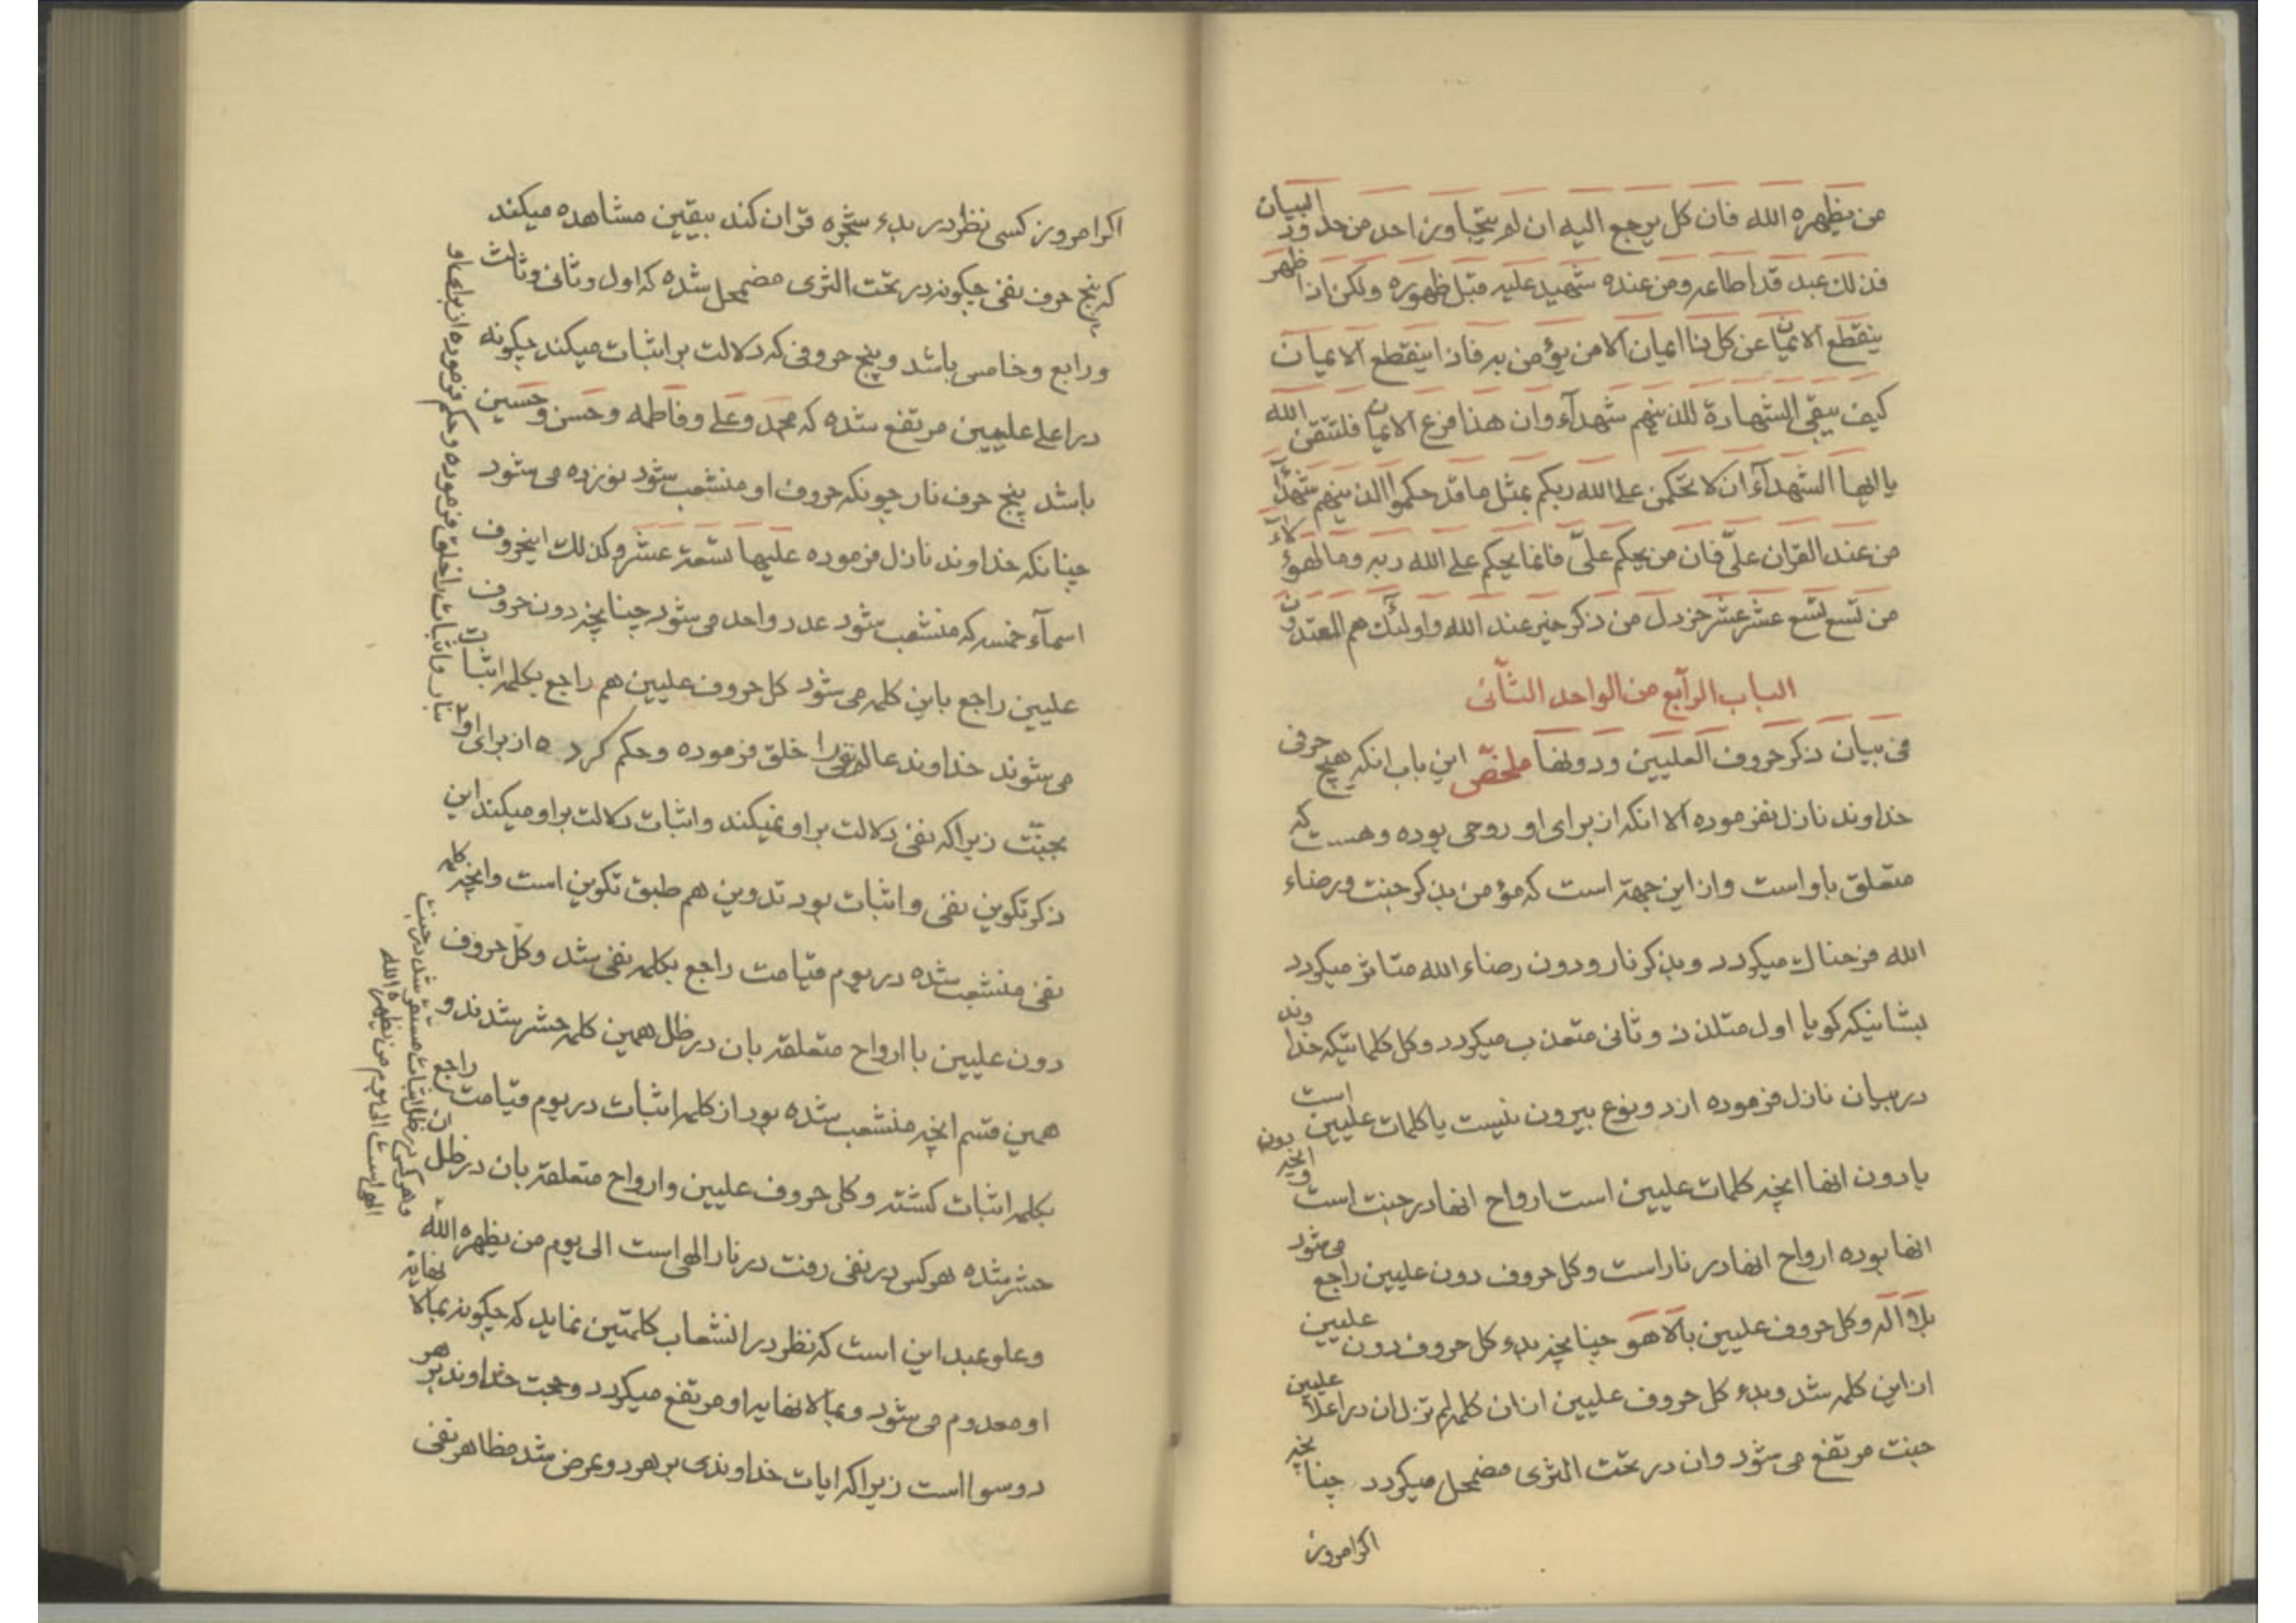 من یظهره الله فان کل یرجع الیه ان لم یتجاوز احد من حدود البیان
فذلک عبد قد اطاعه ومن عنده شهید علیه قبل ظهوره ولکن اذا ظهر
ینقطع الایمان عن کل نا ایمان الا من یؤمن به فاذا ینقطع الایمان
کیف یبقی الشهادة للذینهم شهدآء وان هذا فرع الایمان فلتتقن الله
یا ایها الشهدآء ان لا تحکمن علی الله ربکم بمثل ما قد حکموا الذینهم شهدآء
من عند القران علیّ فان من یحکم علیّ فانما یحکم علی الله ربه وما لهؤلاء
من تسع تسع عشر عشر خردل من ذکر خیر عند الله واولئک هم المعتدون
الباب الرآبع من الواحد الثآنی
فی بیان ذکر حروف العلیین ودونها ملخص این باب انکه هیچ حرفی
خداوند نازل نفرموده الا انکه از برای او روحی بوده وهست که
متعلق باو است واز این جهة است که مؤمن بذکر جنت ورضاء
الله فرحناک میکردد وبذکر نار ودون رضاء الله متاثر میکردد
بشانیکه کویا اول متلذذ وثانی متعذب میکردد وکل کلماتیکه خداوند
در بیان نازل فرموده از دو نوع بیرون نیست یا کلمات علیین است
یا دون انها انچه کلمات علیین است ارواح انها در جنت است وانچه دون
انها بوده ارواح انها در نار است وکل حروف دون علیین راجع می شود
بلا اله وکل حروف علیین بالا هو چنانچه بدء کل حروف دون علیین
از این کلمه شد وبدء کل حروف علیین از ان کلمه لم تزل ان در اعلا علیین
جنت مرتفع می شود وان در تحت الثری مضمحل میکردد چنانچه
اکر امروز
اکر امروز کسی نظر در بدء شجره قران کند بیقین مشاهده میکند
که پنج حرف نفی چکونه در تحت الثری مضمحل شده که اول وثانی وثالث
ورابع وخامس باشد وپنج حروفی که دلالت بر اثبات میکند چکونه
در اعلی علیین مرتفع شده که محمد وعلی وفاطمه وحسن وحسین
باشد پنج حرف نار چونکه حروف او منشعب شود نوزده می شود
چنانکه خداوند نازل فرموده علیها تسعة عشر وکذلک اینحروف
اسمآء خمسه که منشعب شود عدد واحد می شود چنانچه دون حروف
علیین راجع باین کلمه می شود کل حروف علیین هم راجع بکلمه اثبات
می شوند خداوند عالم نفی را خلق فرموده وحکم کرده از برای او
بنار واثبات را خلق فرموده وحکم فرموده از برای او
بجنّت زیرا که نفی دلالت بر او نمیکند واثبات دلالت بر او میکند این
ذکر تکوین نفی واثبات بود تدوین هم طبق تکوین است وانچه کلمه
نفی منشعب شده در یوم قیامت راجع بکلمه نفی شد وکل حروف
دون علیین با ارواح متعلقه بان در ظل همین کلمه حشر شدند و
همین قسم انچه منشعب شده بود از کلمه اثبات در یوم قیامت راجع
بکلمه اثبات کشته وکل حروف علیین وارواح متعلقه بان در ظل ان
حشر شده هر کس در نفی رفت در نار الهی است الی یوم من یظهره الله
وهر کس در ظل اثبات مستقر شد در جنت
الهی است الی یوم من یظهره الله
وعلو عبد این است که نظر در انشعاب کلمتین نماید که چکونه بما لا نهایة
او معدوم می شود وبما لا نهایه او مرتفع میکردد وحجت خداوند بر هر
دو سوا است زیرا که ایات خداوندی بر هر دو عرض شد مظاهر نفی